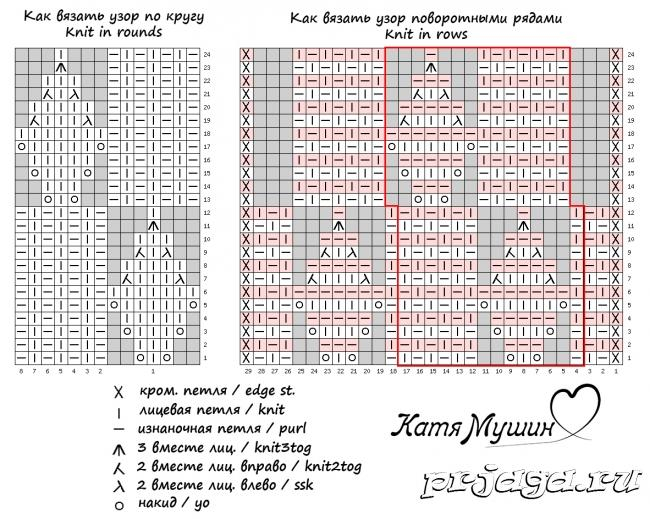 Как вязать узор по кругу
Knit in rounds
Как вязать узор поворотными рядами
Knit in rows
24
23
22
21
20
19
18
17
16
15
14
13
12
11
10
9
8
7
6
5
4
3
2
1
8 7 6 5 4 3 2 1
24
23
22
21
20
19
18
17
16
15
14
13
12
11
10
9
8
7
6
5
4
3
2
1
29 28 27 26 25 24 23 22 21 20 19 18 17 16 15 14 13 12 11 10 9 8 7 6 5 4 3 2 1
X кром. петля / edge st.
| лицевая петля / knit
– изнаночная петля / purl
3 вместе лиц. / knit3tog
2 вместе лиц. вправо / knit2tog
2 вместе лиц. влево / ssk
O накид / yo
Катя Мушин
prjaga.ru